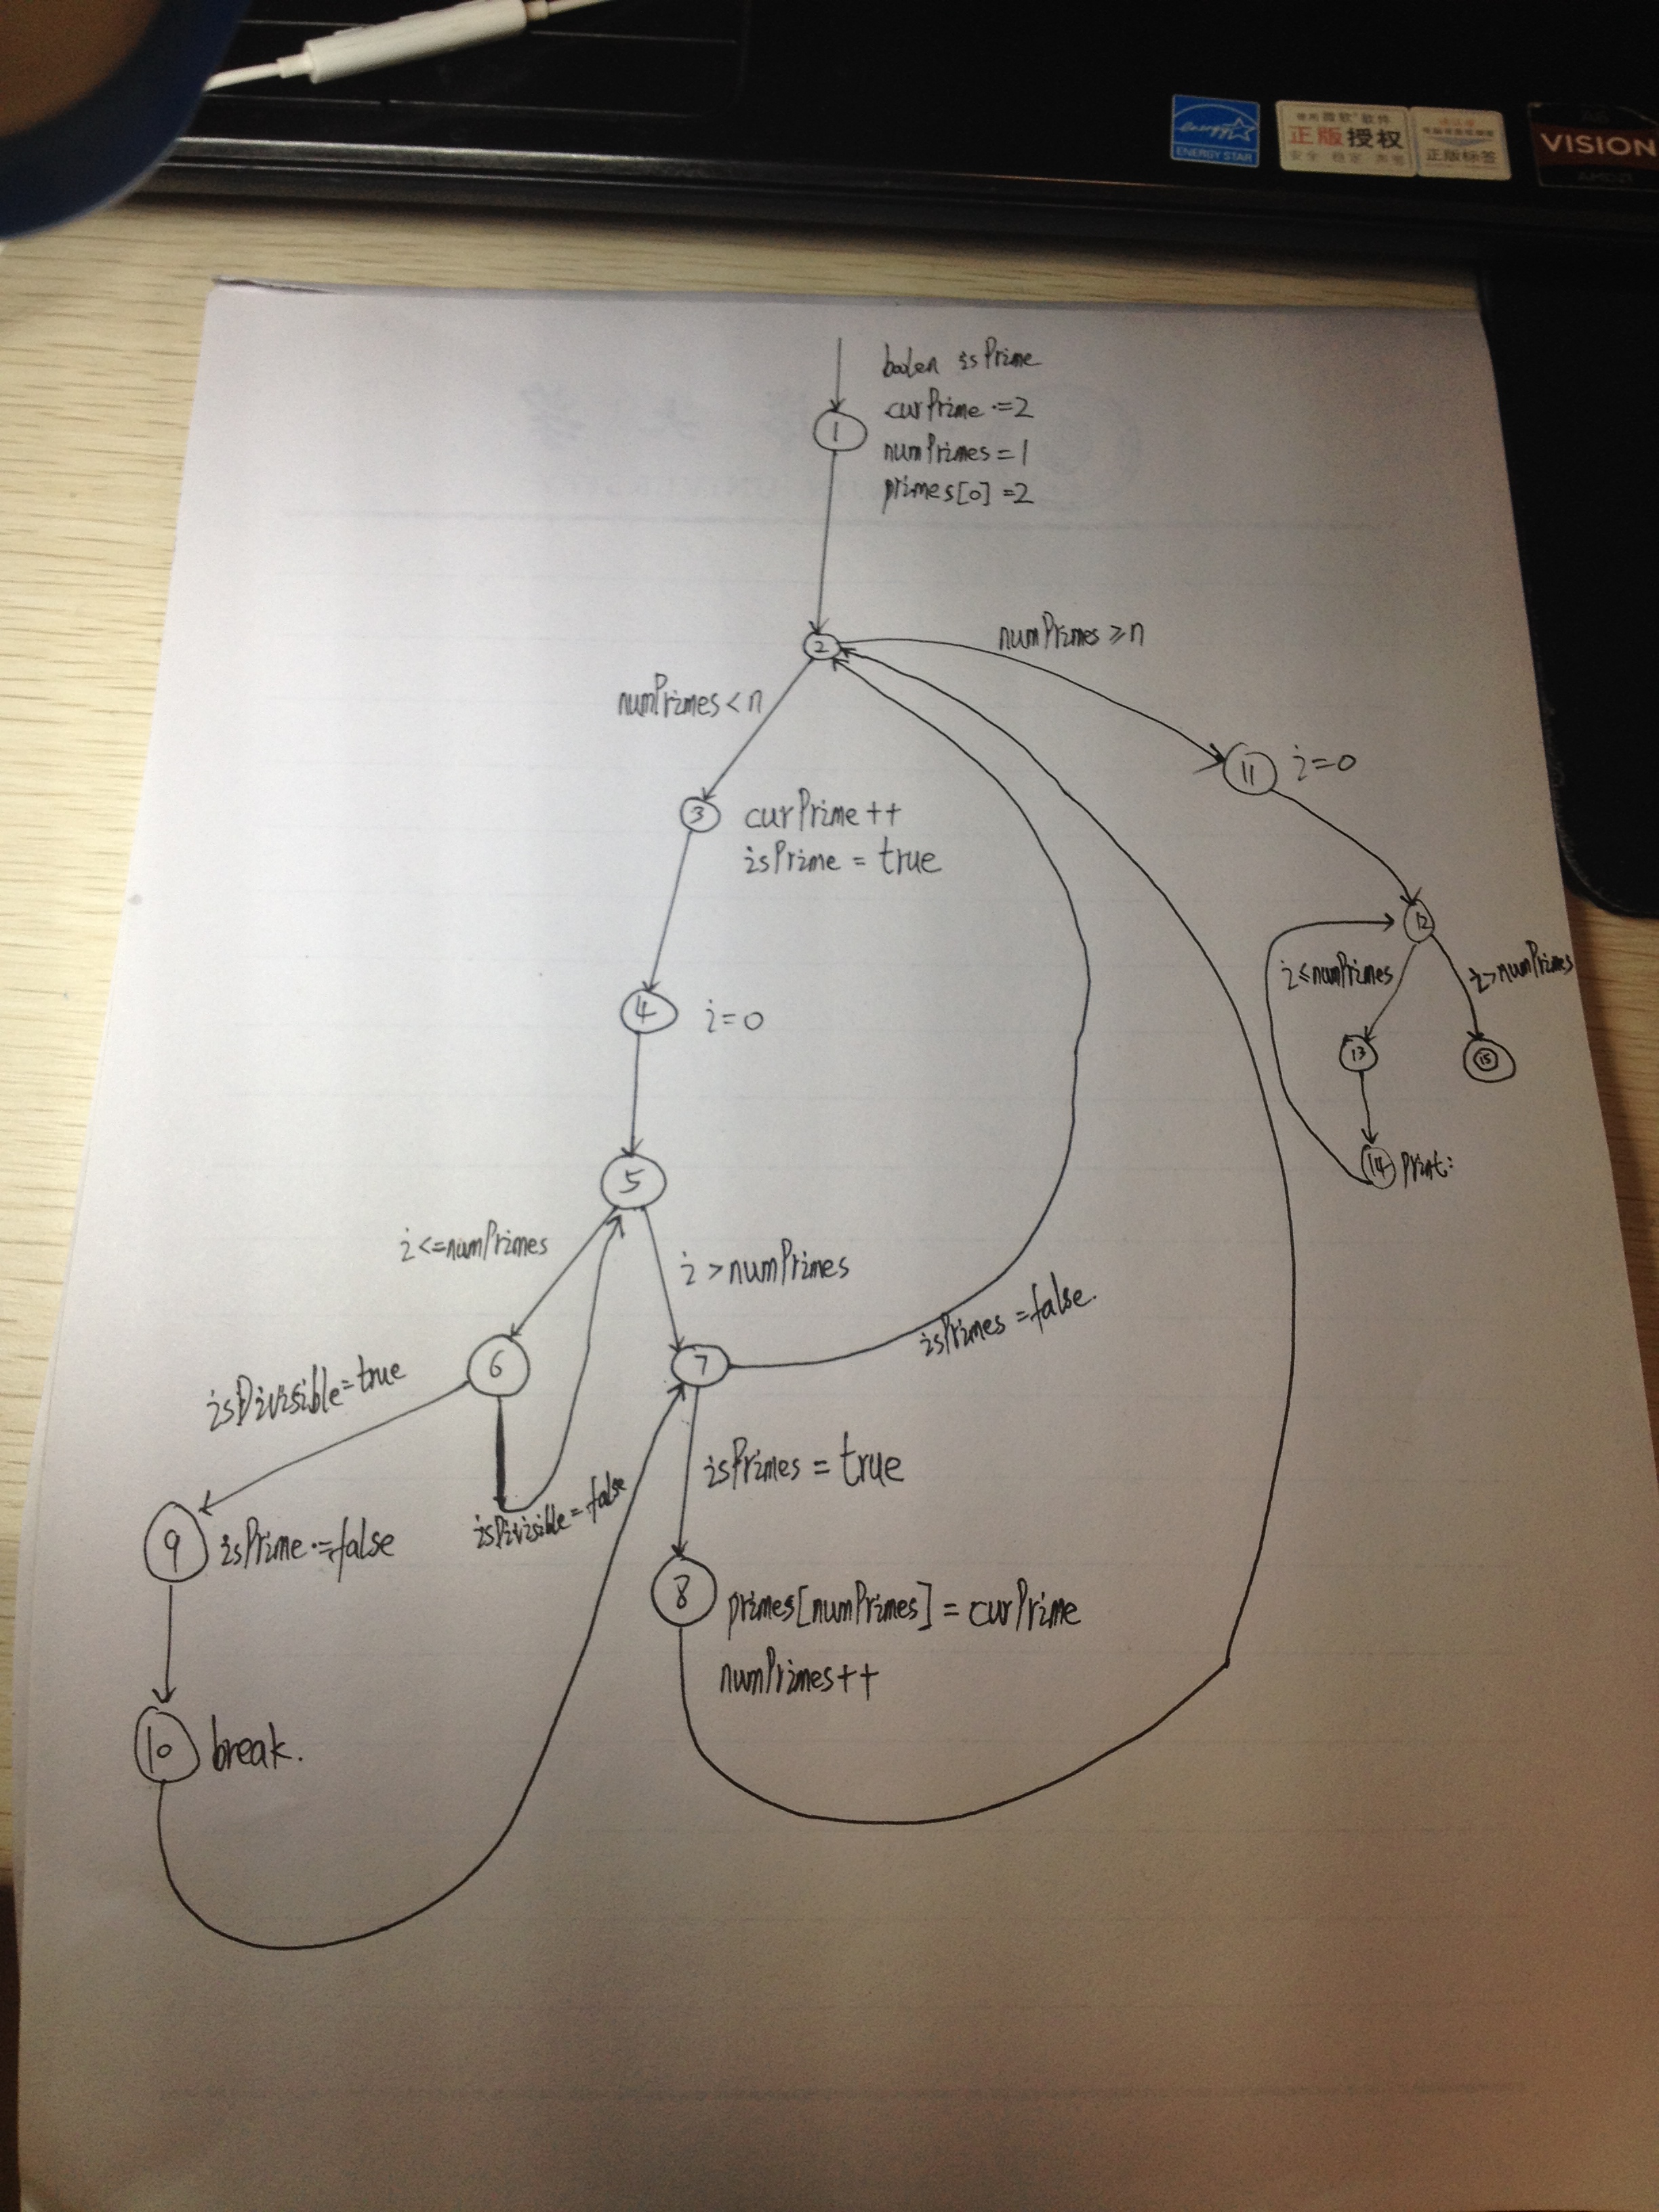 energy
ENERGY STAR
正版授权
安全 稳定 声誉
正版标签
VISION
boolen isPrime
1
curPrime :=2
numPrimes = 1
primes[0] =2
2
numPrimes ≥ n
numPrimes < n
11
i=0
3
curPrime ++
isPrime = true
12
i ≤ numPrimes
i > numPrimes
4
i=0
13
15
14
print:
5
i <= numPrimes
i > numPrimes
6
7
isPrimes = false.
isDivisible = true
isPrimes = true
isDivisible = false
9
isPrime := false
8
primes[numPrimes] = curPrime
numPrimes++
10
break.